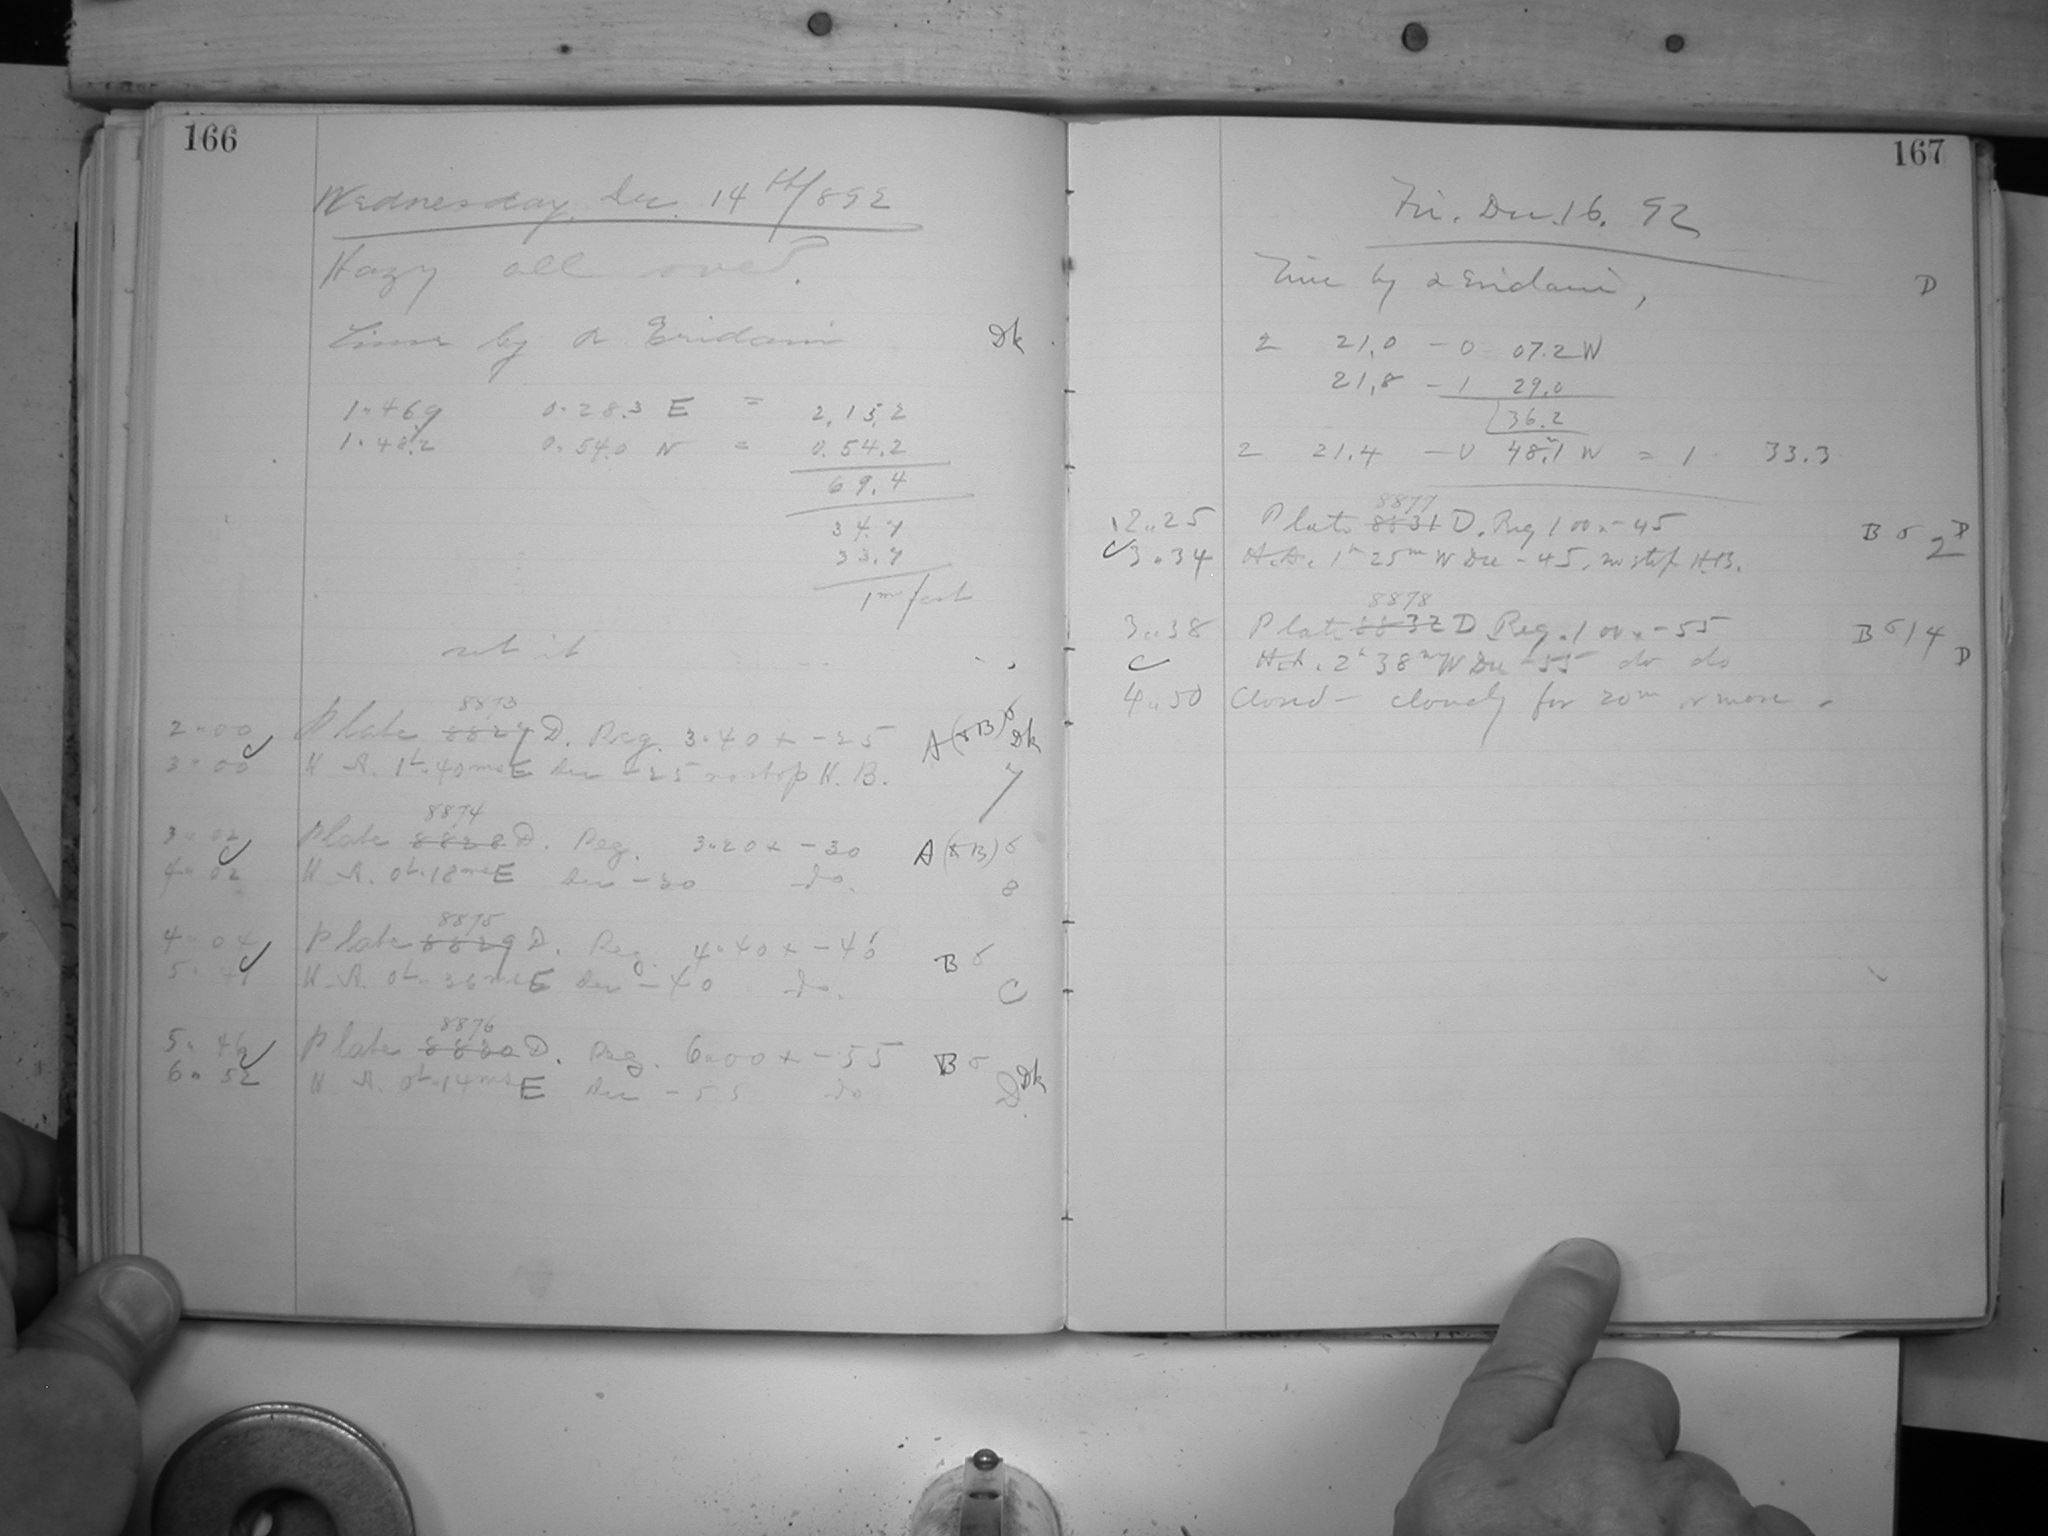 166
Wednesday, Dec. 14th/892
Hazy all over.
Time by α Eridani Dk
1.46.9 0.28.3 E = 2.15.2
1.48.2 0.54.0 W = 0.54.2
69.4
34.7
33.7
1m fast
set it
8873
2.00 Plate 8827 D. Reg. 3.40 x -25 A(&B)6 Dk
3.00 H.A. 1h.40ms E Dec -25 no stop H.B. 7
8874
3.02 Plate 8828 D. Reg. 3.20 x -30 A(&B)6
4.02 H.A. 0h.18ms E Dec -30 do. 8
8875
4.04 Plate 8829 D. Reg. 4.40 x -40 B 6
H.A. 0h.36ms E Dec -40 do. C
8876
5.46 Plate 8830 D. Reg. 6.00 x -55 B 6
6.52 H.A. 0h.14ms E Dec -55 do D Dk
167
Fri. Dec. 16. 92
Time by α Eridani, D
2 21.0 - 0 07.2 W
21.8 - 1 29.0
36.2
2 21.4 - 0 48.1 W = 1 33.3
8877
2.25 Plate 8831 D. Reg 1 00 x -45 B 6 2 D
3.34 H.A. 1h 25m W Dec -45. no stop H.B.
8878
3.38 Plate 8832 D Reg. 1 00 x -55 B 6 14
H.A. 2h 38m W Dec -55 do do D
4.50 Closed - cloudy for 20m or more.